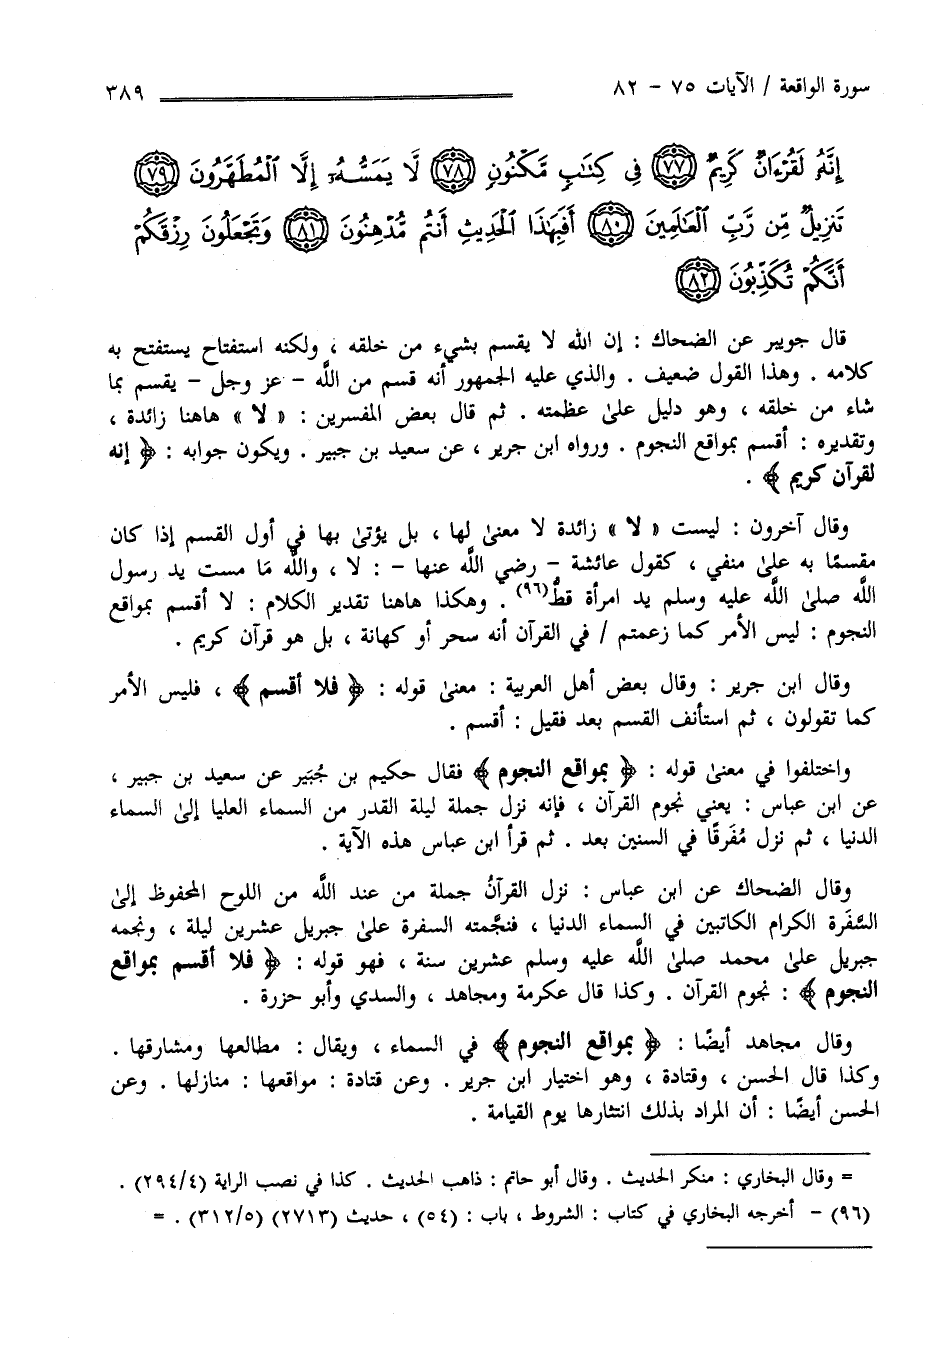 سورة الواقعة / الآيات ٧٥ – ٨٢ ٣٨٩
إِنَّهُ لَقُرْءَانٌ كَرِيمٌ ٧٧ فِى كِتَٰبٍ مَّكْنُونٍ ٧٨ لَّا يَمَسُّهُۥٓ إِلَّا ٱلْمُطَهَّرُونَ ٧٩
تَنزِيلٌ مِّن رَّبِّ ٱلْعَٰلَمِينَ ٨٠ أَفَبِهَٰذَا ٱلْحَدِيثِ أَنتُم مُّدْهِنُونَ ٨١ وَتَجْعَلُونَ رِزْقَكُمْ
أَنَّكُمْ تُكَذِّبُونَ ٨٢
قال جويبر عن الضحاك : إن الله لا يقسم بشيء من خلقه ، ولكنه استفتاح يستفتح به
كلامه . وهذا القول ضعيف . والذي عليه الجمهور أنه قسم من اللَّه – عز وجل – يقسم بما
شاء من خلقه ، وهو دليل علىٰ عظمته . ثم قال بعض المفسرين : « لا » هاهنا زائدة ،
وتقديره : أقسم بمواقع النجوم . ورواه ابن جرير ، عن سعيد بن جبير . ويكون جوابه : ﴿ إنه
لقرآن كريم ﴾ .
وقال آخرون : ليست « لا » زائدة لا معنىٰ لها ، بل يؤتىٰ بها في أول القسم إذا كان
مقسمًا به علىٰ منفي ، كقول عائشة – رضي اللَّه عنها – : لا ، واللَّه مَا مست يد رسول
اللَّه صلىٰ اللَّه عليه وسلم يد امرأة قطُّ(٩٦) . وهكذا هاهنا تقدير الكلام : لا أقسم بمواقع
النجوم : ليس الأمر كما زعمتم / في القرآن أنه سحر أو كهانة ، بل هو قرآن كريم .
وقال ابن جرير : وقال بعض أهل العربية : معنىٰ قوله : ﴿ فلا أقسم ﴾ ، فليس الأمر
كما تقولون ، ثم استأنف القسم بعد فقيل : أقسم .
واختلفوا في معنىٰ قوله : ﴿ بمواقع النجوم ﴾ فقال حكيم بن جُبَير عن سعيد بن جبير ،
عن ابن عباس : يعني نجوم القرآن ، فإنه نزل جملة ليلة القدر من السماء العليا إلىٰ السماء
الدنيا ، ثم نزل مُفَرقًا في السنين بعد . ثم قرأ ابن عباس هذه الآية .
وقال الضحاك عن ابن عباس : نزل القرآنُ جملة من عند اللَّه من اللوح المحفوظ إلىٰ
السَّفَرة الكرام الكاتبين في السماء الدنيا ، فنجَّمته السفرة علىٰ جبريل عشرين ليلة ، ونجمه
جبريل علىٰ محمد صلىٰ اللَّه عليه وسلم عشرين سنة ، فهو قوله : ﴿ فلا أقسم بمواقع
النجوم ﴾ : نجوم القرآن . وكذا قال عكرمة ومجاهد ، والسدي وأبو حزرة .
وقال مجاهد أيضًا : ﴿ بمواقع النجوم ﴾ في السماء ، ويقال : مطالعها ومشارقها .
وكذا قال الحسن ، وقتادة ، وهو اختيار ابن جرير . وعن قتادة : مواقعها : منازلها . وعن
الحسن أيضًا : أن المراد بذلك انتثارها يوم القيامة .
= وقال البخاري : منكر الحديث . وقال أبو حاتم : ذاهب الحديث . كذا في نصب الراية (٢٩٤/٤) .
(٩٦) – أخرجه البخاري في كتاب : الشروط ، باب : (٥٤) ، حديث (٢٧١٣) (٣١٢/٥) . =